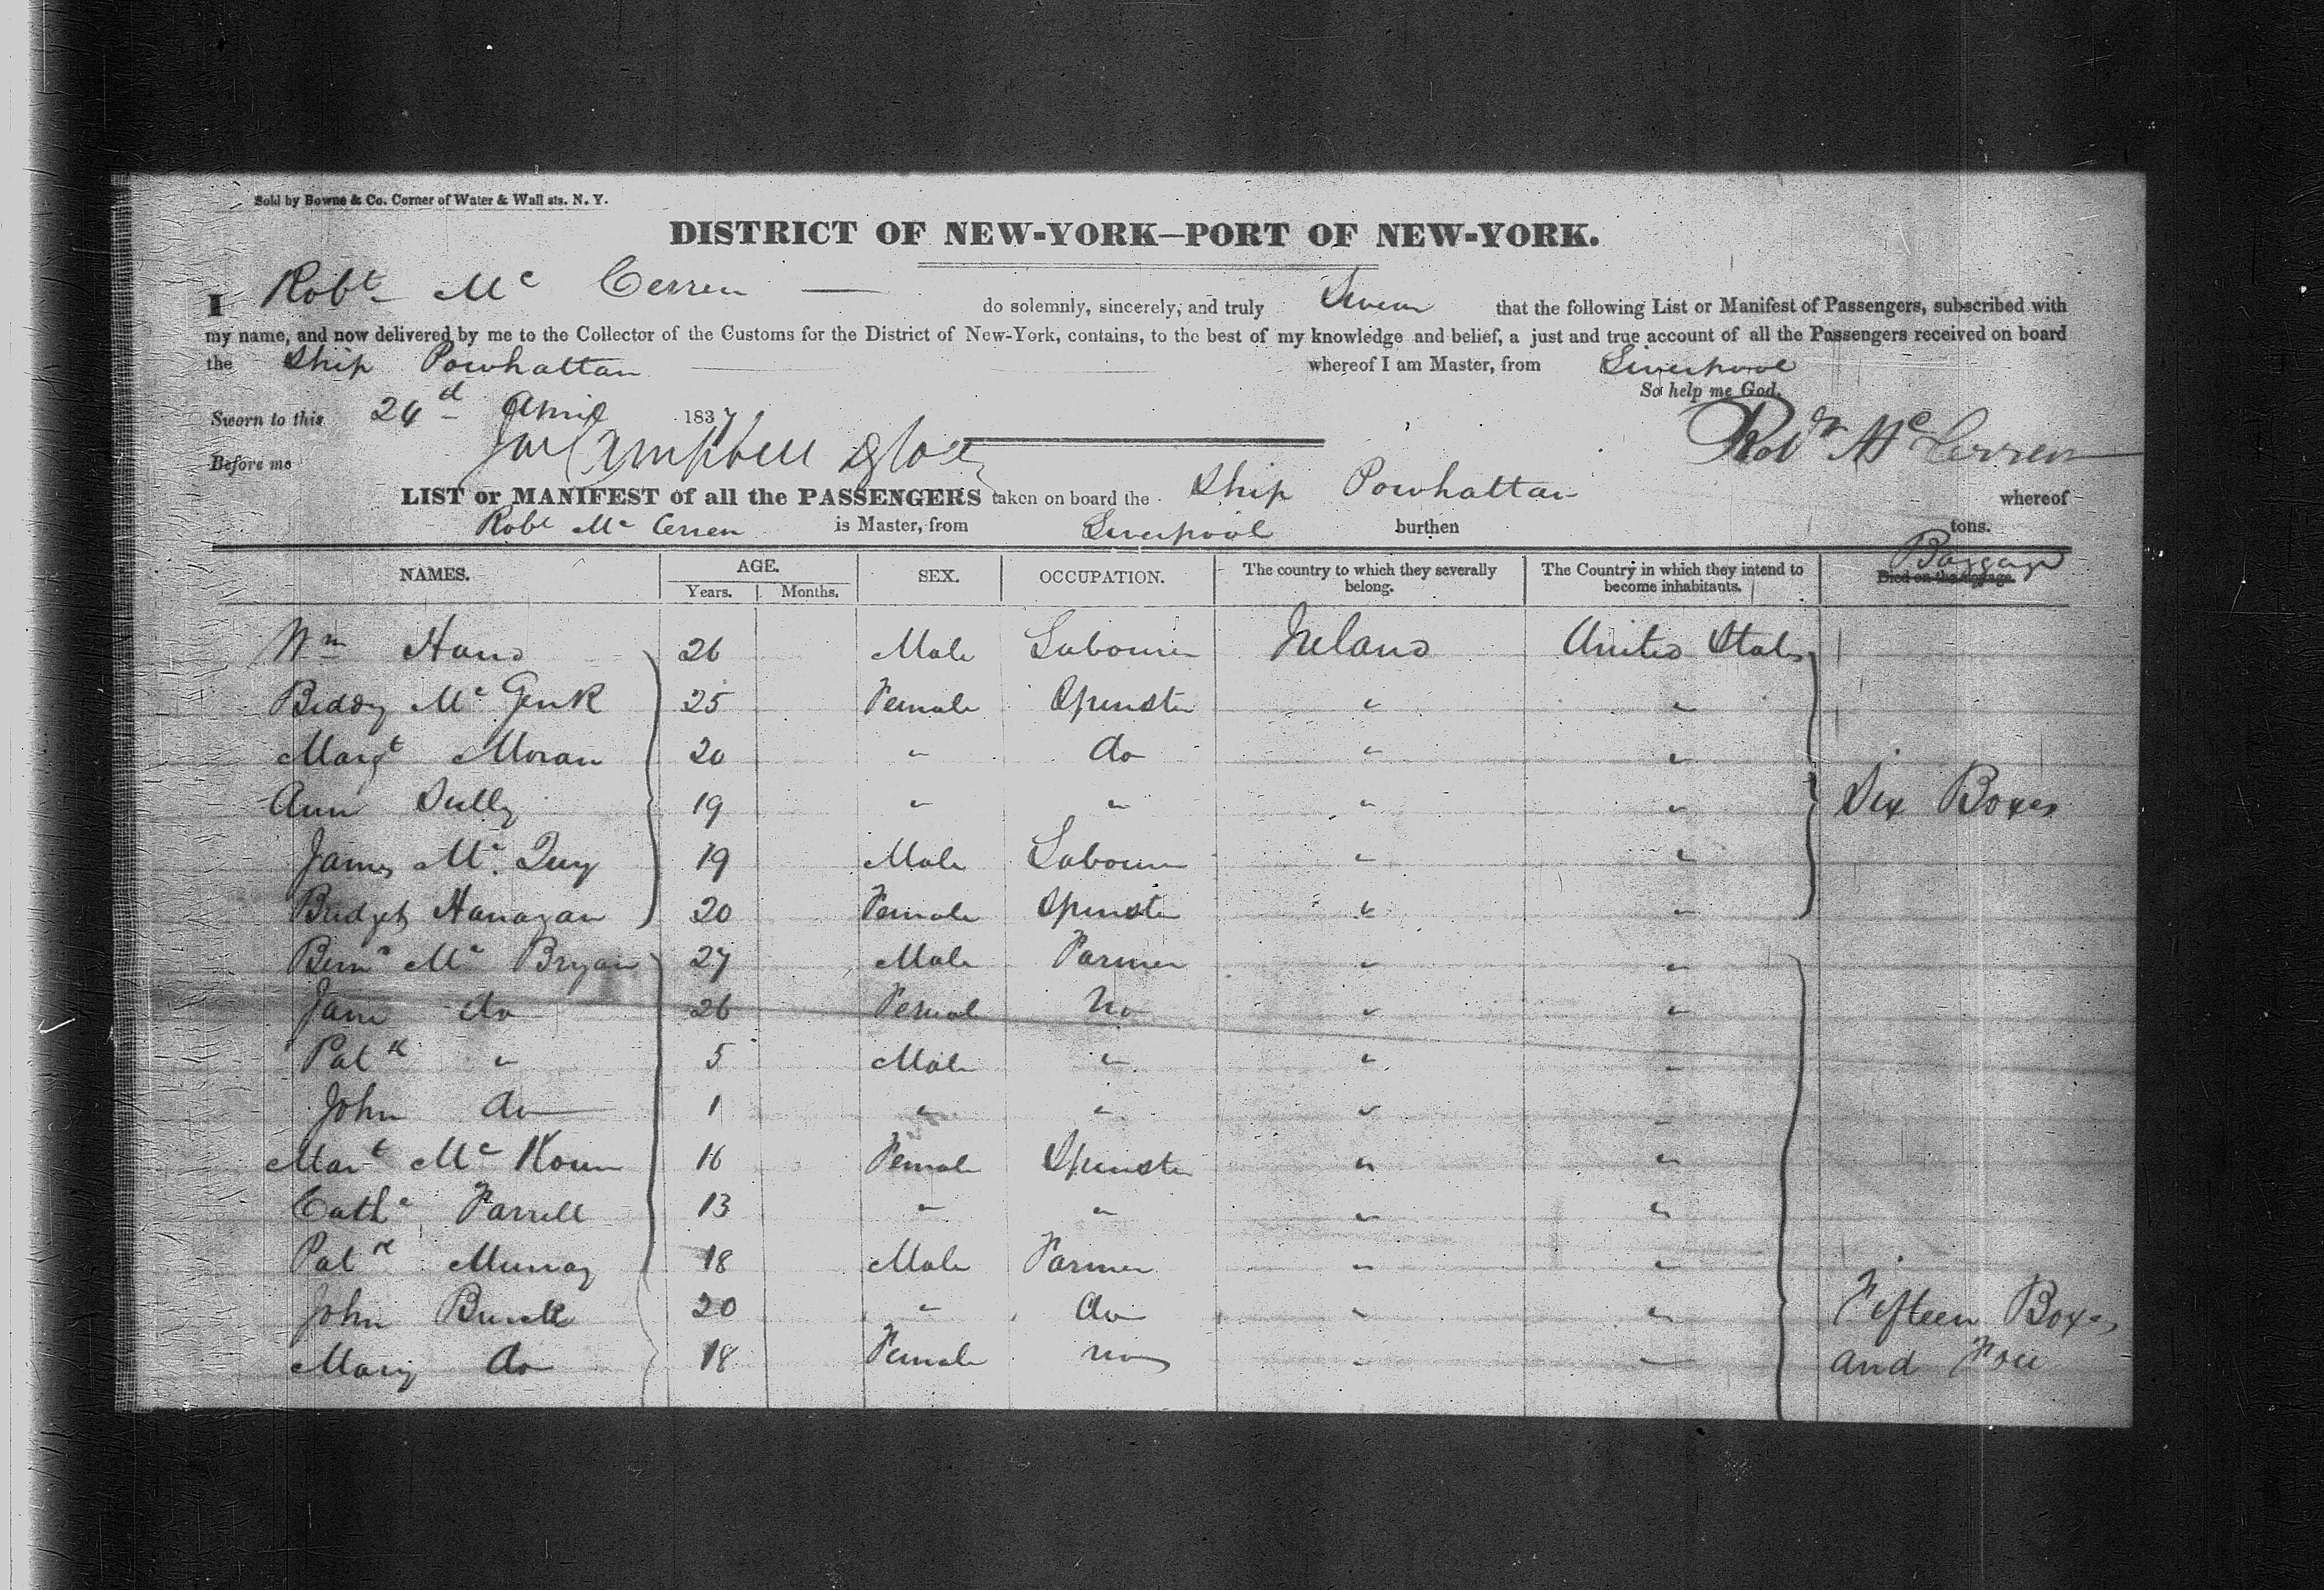 Sold by Bowne & Co. Corner of Water & Wall sts. N. Y.
DISTRICT OF NEW-YORK—PORT OF NEW-YORK.
I Robt Mc Cerren — do solemnly, sincerely, and truly Swear that the following List or Manifest of Passengers, subscribed with
my name, and now delivered by me to the Collector of the Customs for the District of New-York, contains, to the best of my knowledge and belief, a just and true account of all the Passengers received on board
the Ship Powhattan whereof I am Master, from Liverpool
So help me God.
Sworn to this 24d April 1837
Robt Mc Cerren
Before me Campbell
LIST or MANIFEST of all the PASSENGERS taken on board the Ship Powhattan whereof
Robt Mc Cerren is Master, from Liverpool burthen tons.
NAMES. AGE. Years. Months. SEX. OCCUPATION. The country to which they severally belong. The Country in which they intend to become inhabitants. Baggage Died on the voyage.
Wm Hand 26 Male Labourer Ireland United States
Biddy Mc Genk 25 Female Spinster " "
Margt Moran 20 " do " "
Ann Sully 19 " " " " Six Boxes
James Mc. Quy 19 Male Labourer " "
Bridget Hanagan 20 Female Spinster " "
Bernd Mc Bryan 27 Male Farmer " "
Jane do 26 Femal No " "
Patk " 5 Male " " "
John do 1 " " " "
Mart Mc Koun 16 Female Spinster " "
Cathe Farrell 13 " " " "
Patk Murray 18 Male Farmer " "
John 20 " do " " Fifteen Boxes
Mary do 18 Female " " and